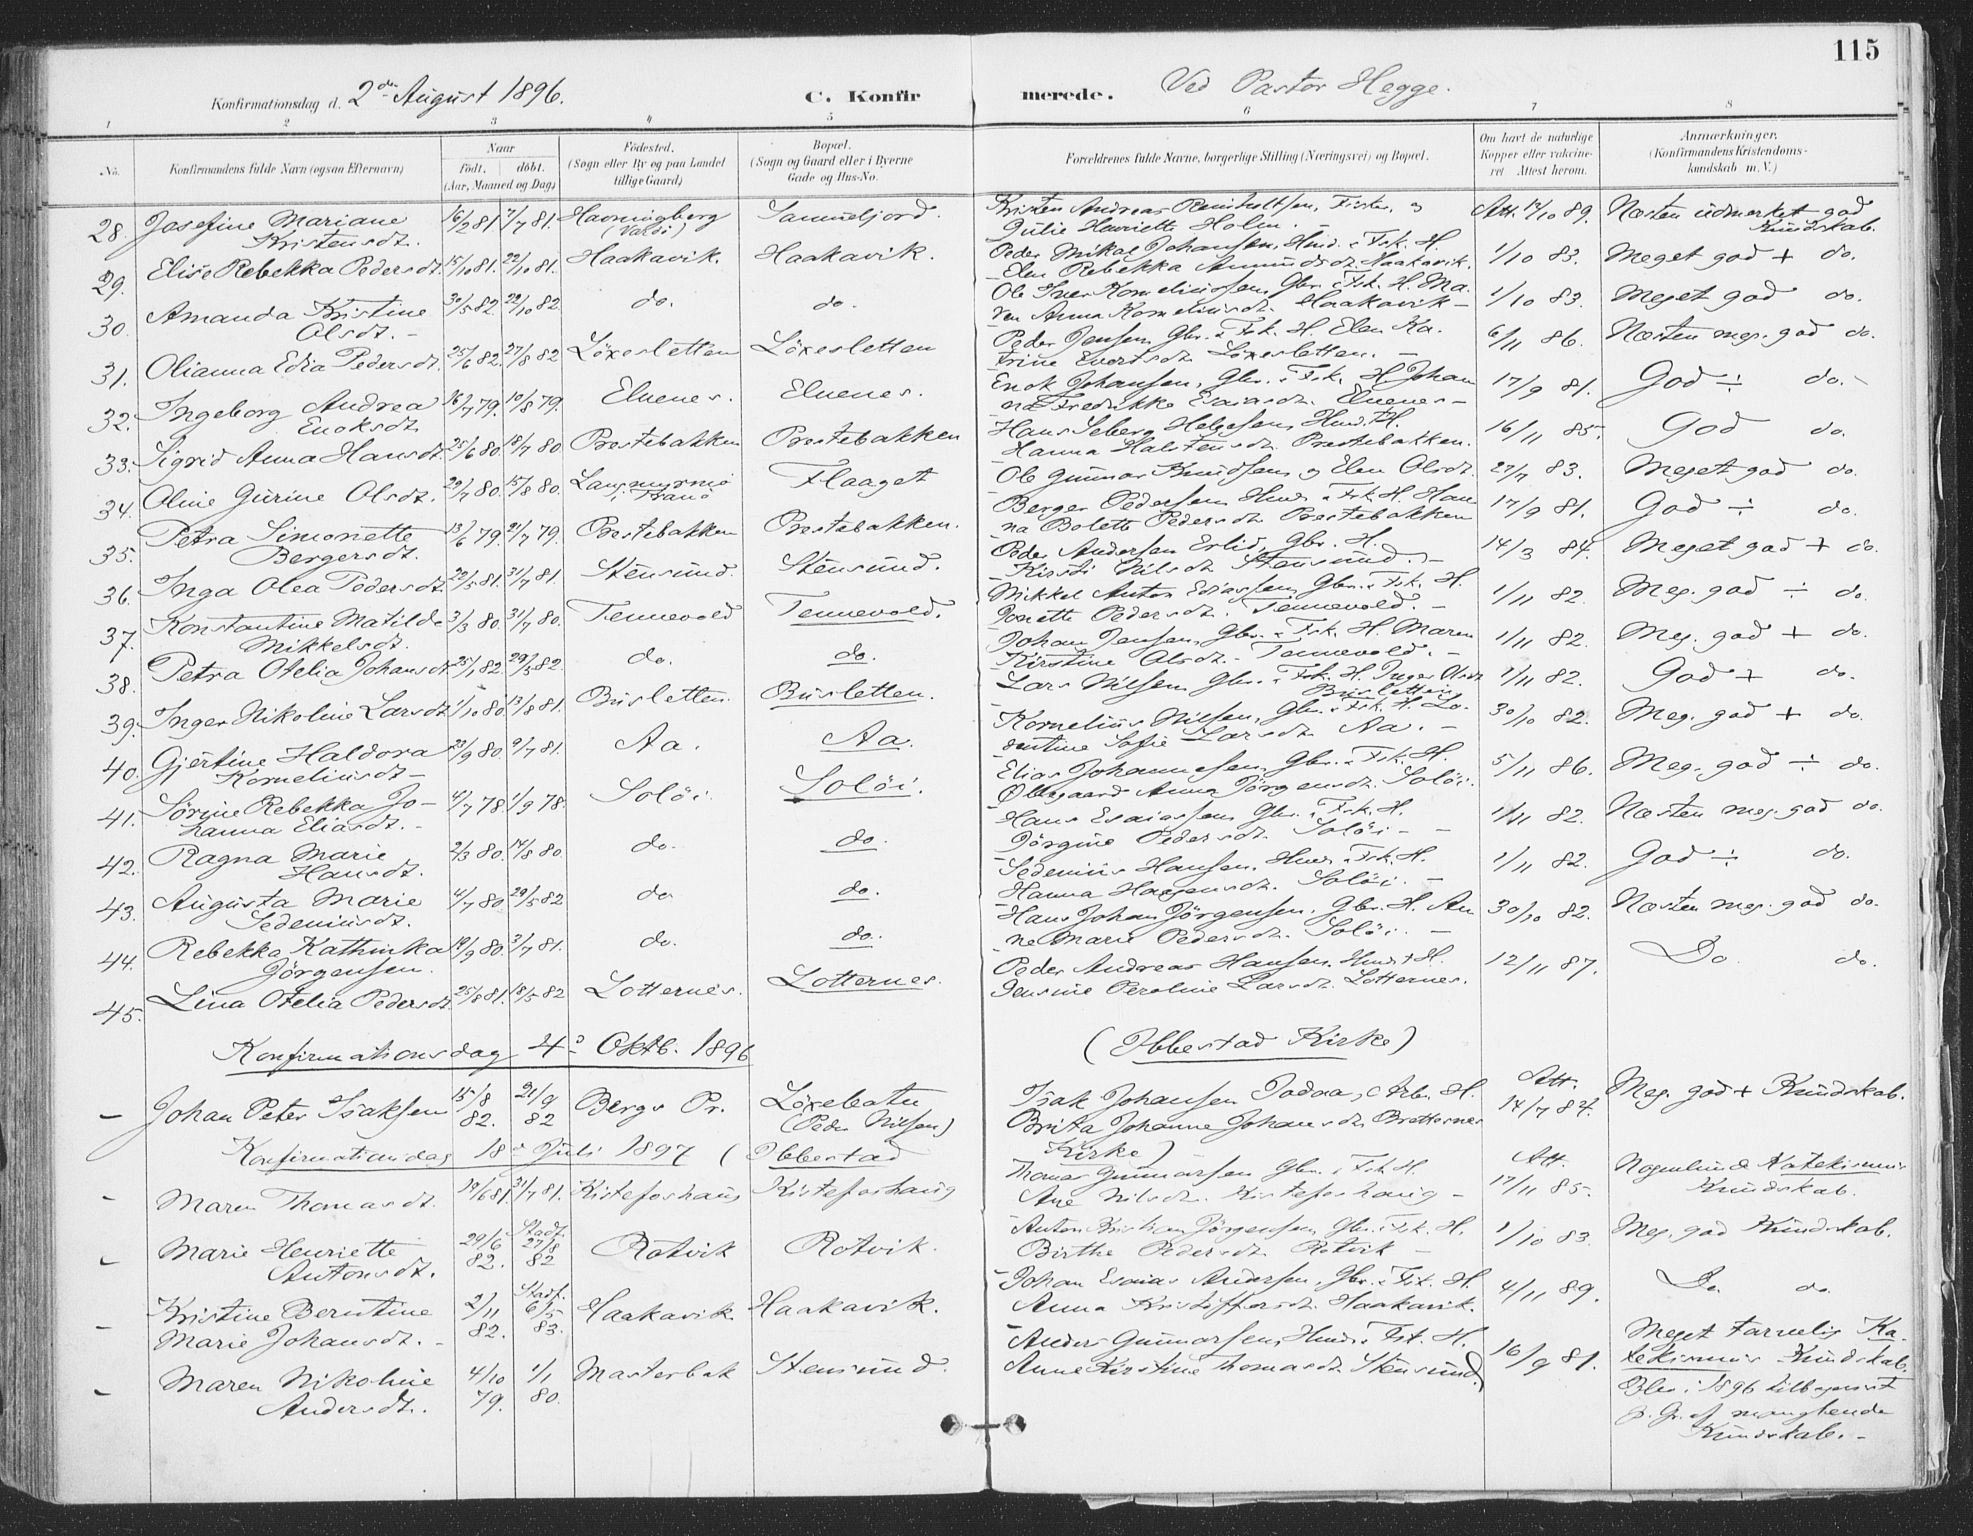 115
Konfirmationsdag d. 2den August 1896. C. Konfirmerede. Ved Pastor Hegge.
1 2 3 4 5 6 7 8
No. Konfirmandens fulde Navn (ogsaa Efternavn) Naar født. døbt. (Aar, Maaned og Dag) Fødested. (Sogn eller By og paa Landet tillige Gaard) Bopæl. (Sogn og Gaard eller i Byerne Gade og Hus-No. Forældrenes fulde Navne, borgerlige Stilling (Næringsvei) og Bopæl. Om havt de naturlige Kopper eller vakcineret Attest herom. Anmærkninger. (Konfirmandens Kristendomskundskab m. V.)
28. Josefine Mariane Kristensdt. 16/2 81 7/7 81. Havningberg (Vardö) Kristen Andreas Reinholtsen, Fisker, og Julie Henriette Holm. Att. 89. Næsten udmerket god Kundskab.
29. Elise Rebekka Pedersdt. 15/10 81. 22/10 81. Haakavik. Haakavik. Peder Mikal Johansen, Hmd. i Fsk. H. Elen Rebekka Amundsdt. Haakavik. 1/10 83. Meget god + do.
30. Amanda Kristine Olsdt. 30/5 82 22/10 82. do. do. Ole Iver Korneliussen, Gbr. i Fsk. H. Maren Anna Korneliusdt. Haakavik 1/10 83. Meget god do.
31. Olianna Edia Pedersdt. 25/6 82. 27/8 82 Löxesletten Löxesletten Peder Jensen, Gbr. i Fsk. H. Elen Katrine Evertsdt. Löxesletten. 6/11 86. Næsten meg. god do.
32. Ingeborg Andrea Enoksdt. 16/7 79. 10/8 79. Elvenes. Elvenes. Enok Johansen, Gbr. i Fsk. H. Johanna Fredrikke Esaiasdt. Elvenes 17/9 81. God ÷ do.
33. Sigrid Anna Hansdt. 25/6 80. 18/7 80. Prestebakken Prestebakken Hans Seberg Helgesen, Hmd. H. Hanna Halstensdt. Prestebakken. 16/11 85. God do.
34. Oline Gurine Olsdt. 29/7 80. 15/8 80. Langmyrmo i Tranö Flaaget Ole Gunnar Knudsen og Elen Olsdt. 27/7 83. Meget god do.
35. Petra Simonette Bergersdt. 13/6 79. 21/7 79. Prestebakken Prestebakken. Berger Pedersen Hmd. i Fsk. H. Hanna Bolette Pedersdt. Prestebakken 17/9 81. God ÷ do.
36. Inga Olea Pedersdt. 22/5 81. 31/7 81. Stensund. Stensund. Peder Andersen Erlid, Gbr. H. Kirsti Nilsdt. Stensund. 14/3 84. Meget god + do.
37. Konstantine Matilde Mikkelsdt. 3/3 80. 31/7 80. Tennevold Tennevold. Mikkel Anton Esiassen Gbr. i Fsk. H. Jonette Pedersdt. Tennevold. 1/11 82. Meg. god ÷ do.
38. Petra Otelia Johansdt. 25/1 82. 29/5 82. do. do. Johan Jensen, Gbr. i Fsk. H. Maren Kirstine Olsdt. Tennevold. 1/11 82. Meg. god + do.
39. Inger Nikoline Larsdt. 1/10 80. 13/8 81. Busletten. Busletten. Lars Nilsen Gbr. i Fsk. H. Inger Olsdt. Busletten. 1/11 82. God + do.
40. Gjertine Haldora Korneliusdt. 23/9 80. 9/7 81. Aa. Aa. Kornelius Nilsen, Gbr. i Fsk. H. Lodentine Sofie Larsdt. Aa. 30/10 82. Meg. god + do.
41. Sørine Rebekka Johanna Eliasdt. 4/7 78. 1/9 78. Solöi. Solöi. Elias Johannesen, Gbr. i Fsk. H. Ollegaard Anna Jörgensdt. Solöi. 5/11 86. Meg. god ÷ do.
42. Ragna Marie Hansdt. 2/3 80. 14/8 80. do. do. Hans Esaiassen Gbr. i Fsk. H. Jörgine Pedersdt. Solöi 1/11 82. Næsten meg. god do.
43. Augusta Marie Sedeniusdt. 4/7 80. 29/5 82 do do. Sedenius Hansen, Hmd. i Fsk. H. Hanna Haagensdt. Solöi. 1/11 82. God ÷ do.
44. Rebekka Kathinka Jörgensen. 19/9 80. 3/7 81. do. do. Hans Johan Jörgensen, Gbr. H. Anne Marie Pedersdt. Solöi. 30/10 82. Næsten meg. god do.
45. Lina Otelia Pedersdt. 25/8 81. 18/5 82 Lotternes. Lotternes. Peder Andreas Hansen, Hmd. H. Jensine Peroline Larsdt. Lotternes. 12/11 87. Do. do.
Konfirmationsdag 4de Oktb. 1896 (Ibbestad Kirke)
- Johan Peter Isaksen 15/8 82. 21/9 82 Bergs Pr. Löxebotn (Peder Nilsen) Isak Johansen Arb. H. Brita Johanne Johansdt. Brettesnes Att. 14/7 84. Meg. god + Kundskab.
Konfirmationsdag 18de Juli 1897 (Ibbestad Kirke)
- Maren Thomasdt. 19/6 81. 31/7 81. Kistefoshaug Kistefoshaug Thomas Gunnarsen Gbr. i Fsk. H. Ane Nilsdt. Kistefoshaug Att. 17/11 85. Nogenlunde Katekismus Kundskab.
- Marie Henriette Antonsdt. 29/6 82. Stadf. 27/8 82 Rotvik Rotvik. Anton Kristian Jörgensen, Gbr. i Fsk. H. Birthe Pedersdt. Rotvik 1/10 83. Meg. god Kundskab.
- Kristine Berntine Marie Johansdt. 2/11 82. Stadf. 6/5 83. Haakavik. Haakavik. Johan Esaias Andersen, Gbr. i Fsk. H. Anna Kristoffersdt. Haakavik. 4/11 89. Do. do.
- Maren Nikoline Andersdt. 4/10 79. 1/1 80. Masterbak Stensund. Anders Gunnarsen, Hmd. i Fsk. H. Anne Kirstine Thomasdt. Stensund. 16/9 81. Meget tarvelig Katekismus Kundskab. Blev i 1896 tilbagevist p. Gr. af manglende Kundskab.